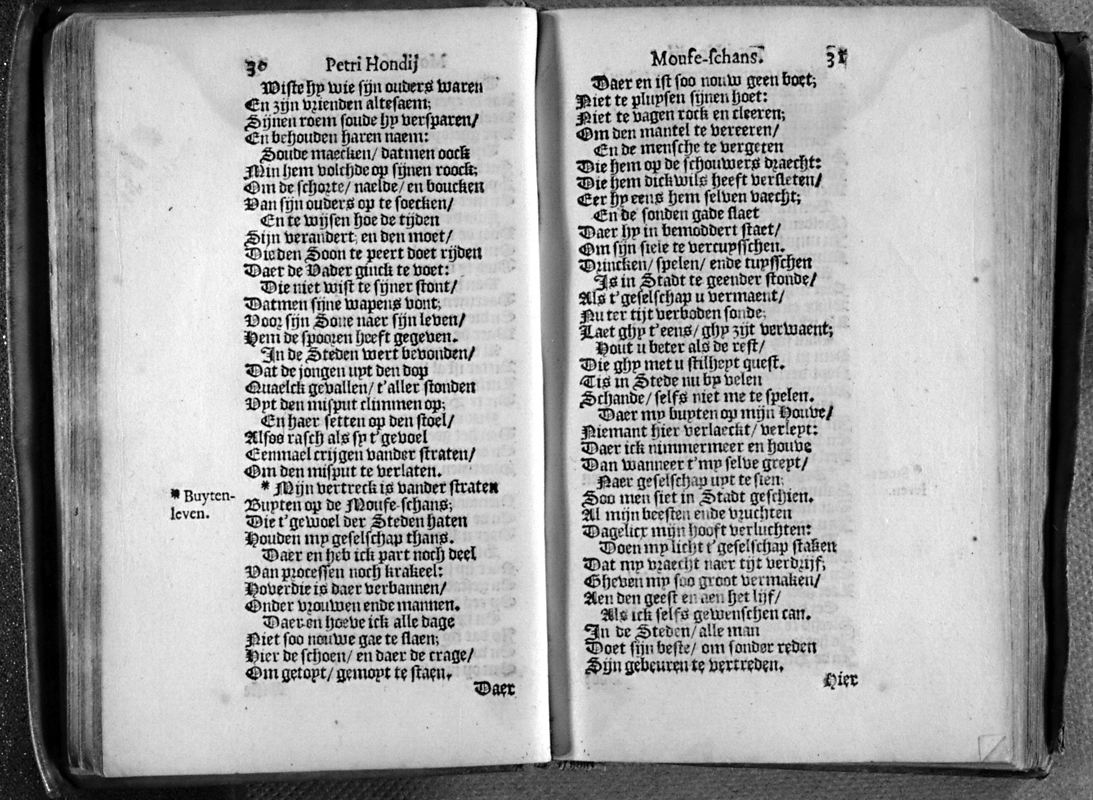 30 Petri Hondij
Wiste hy wie sijn ouders waren
En zijn vrienden altesaem;
Sijnen roem soude hy versparen/
En behouden haren naem:
Soude maecken/ datmen oock
Min hem volchde op sijnen roock;
Om de schorte/ naelde/ en boucken
Van sijn ouders op te soecken/
En te wijsen hoe de tijden
Sijn verandert, en den moet/
Die den Soon te peert doet rijden
Daer de Vader ginck te voet:
Die niet wist te sijner stont/
Datmen sijne wapens vont,
Voor sijn Sone naer sijn leven/
Hem de spooren heeft gegeven.
In de Steden wert bevonden/
Dat de jongen uyt den dop
Quaelck gevallen/ t'aller stonden
Vyt den misput climmen op;
En haer setten op den stoel/
Alsoo rasch als sy t'gevoel
Eenmael crijgen vander straten/
Om den misput te verlaten.
* Mijn vertreck is vander straten
* Buyten-
leven.
Buyten op de Moufe-schans;
Die t'gewoel der Steden haten
Houden my geselschap thans.
Daer en heb ick part noch deel
Van processen noch krakeel:
Hoverdie is daer verbannen/
Onder vrouwen ende mannen.
Daer en hoeve ick alle dage
Niet soo nouwe gae te slaen;
Hier de schoen/ en daer de crage/
Om getoyt/ gemoyt te staen.
Daer
Moufe-schans. 31
Daer en ist soo nouw geen boet;
Niet te pluysen sijnen hoet:
Niet te vagen rock en cleeren;
Om den mantel te vereeren/
En de mensche te vergeten
Die hem op de schouwers draecht:
Die hem dickwils heeft versleten/
Eer hy eens hem selven vaecht;
En de sonden gade slaet
Daer hy in bemoddert staet/
Om sijn siele te vercuysschen.
Drincken/ spelen/ ende tuysschen
Is in Stadt te geender stonde/
Als t'geselschap u vermaent/
Nu ter tijt verboden sonde;
Laet ghy t'eens/ ghy zijt verwaent;
Hout u beter als de rest/
Die ghy met u stilheyt quest.
Tis in Stede nu by velen
Schande/ selfs niet me te spelen.
Daer my buyten op mijn Houve/
Niemant hier verlaeckt/ verleyt:
Daer ick nimmermeer en houve
Dan wanneer t'my selve greyt/
Naer geselschap uyt te sien;
Soo men siet in Stadt geschien.
Al mijn beesten ende vruchten
Dagelicx mijn hooft verluchten:
Doen my licht t'geselschap staken
Dat my vraecht naer tijt verdrijf;
Gheven my soo groot vermaken/
Aen den geest en aen het lijf/
Als ick selfs gewenschen can.
In de Steden/ alle man
Doet sijn beste/ om sonder reden
Sijn gebeuren te vertreden.
Hier